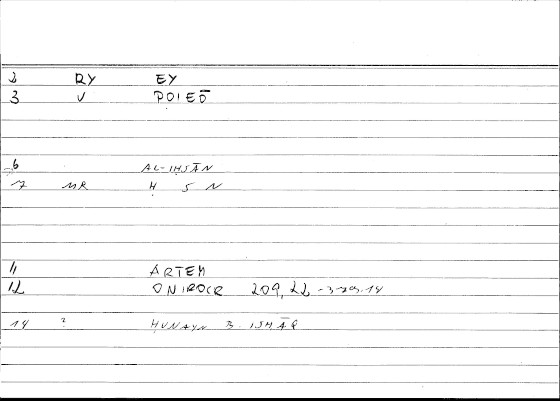 2 RY EY
3 V POIEŌ
6 AL-IḤSĀN
7 MR Ḥ S N
11 ARTEM
12 ONIROCR 209, 22
14 ? ḤUNAYN B. ISḤĀQ